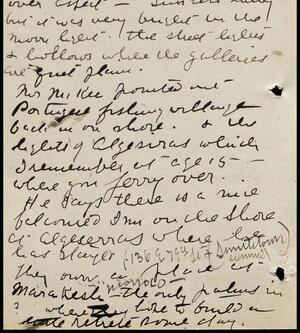 but it was very bright in the
moon light. the shore lights
& hollows where the galleries
are quite plain.
Mr McKee pointed out
Portugese fishing village
back in on shore. & the
lights of Algeseras which
I remember at age 15 -
where you ferry over..
He says there is a nice
balconied Inn on the shore
at Algeserras where he
has stayed (136 E 79th St &
summer)
They own a place at
Marakesh Morroco the only palms in
? where they hope to build a
retreat some day.